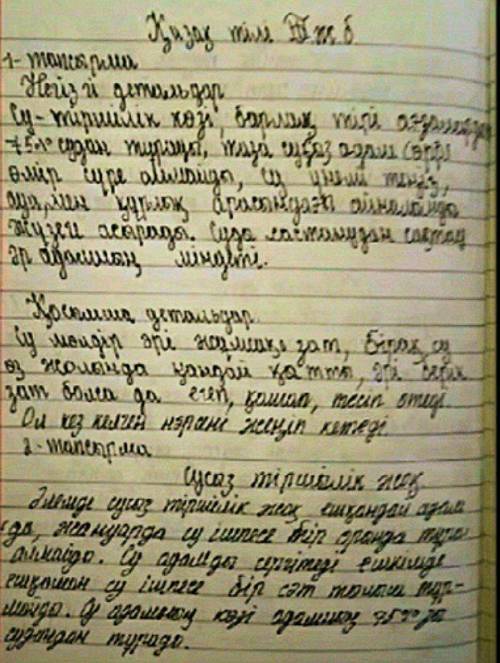 Қазақ тілі Тжб
1- тапсырма
Негізгі детальдар
Су- тіршілік көзі, барлақ тірі ағзалардың
75% судан тұрады, таза сусыз адам әрі
өмір сүре алмайды, су үнемі теңіз,
ауа, мен құрлық арасындағы айналанды
жүзеге асырады. Суда ластанудан сақтау
әр адамның міндеті.
Қосымша детальдар
Су мөлдір әрі жұмсақ зат, бірақ су
өз жолында қандай қатты, әрі берік
зат болса да егеп, қашап, тесіп өтеді.
Ол кез келген нәрсені жеңіп кетеді
2- тапсырма
Сусыз тіршілік жоқ
Әлемде сусыз тіршілік жоқ, ешқандай адам
да, жануарда су ішпесе бір орында тұра
алмайды. Су адамды сергітеді ешкімде
ешқашан су ішпесе бір сәт тұр-
майды. Су адамның көзі адамның 75%
судан тұрады.